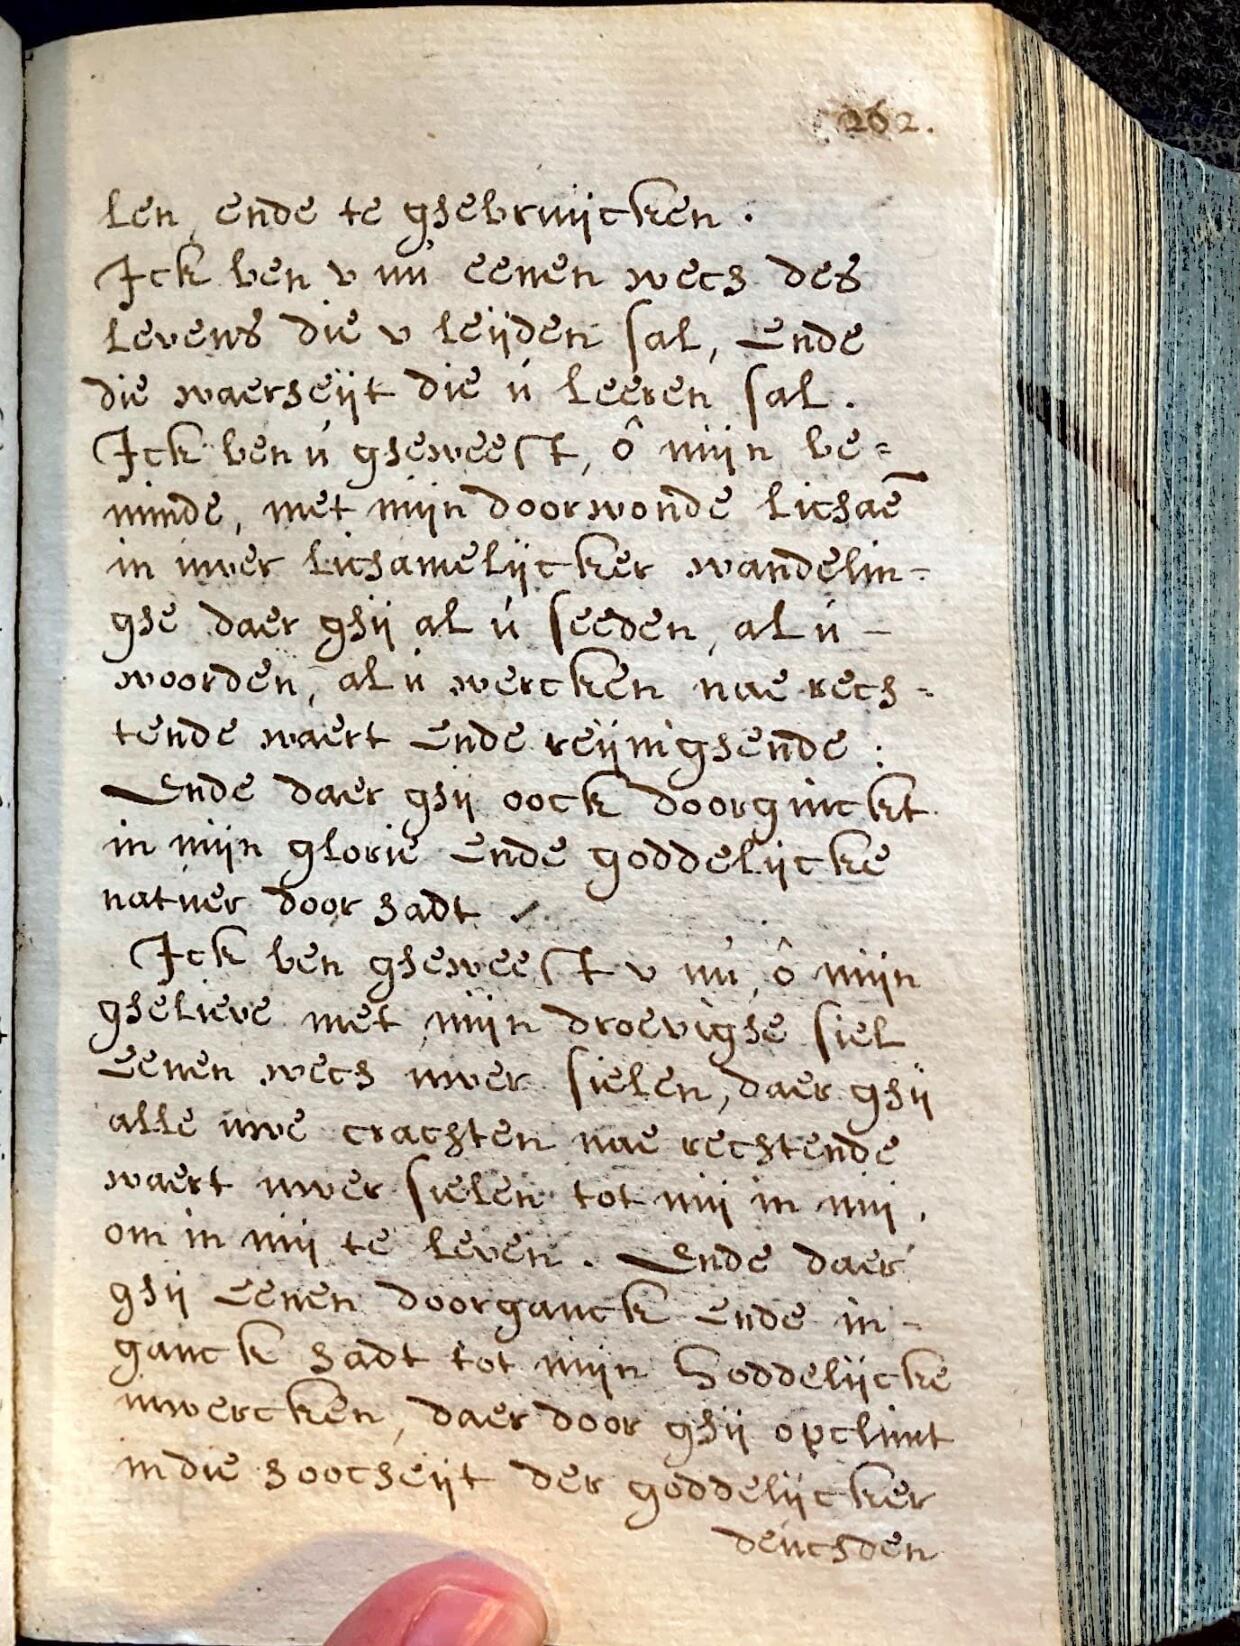 262.
len, ende te ghebruijcken.
Ick ben v nú eenen wech des
levens die v leijden sal, Ende
die waerheijt die ú leeren sal.
Ick ben ú gheweest, ô mijn be=
minde, met mijn doorwonde lichaē
in úwer lichamelijcker wandelin-
ghe daer ghij al ú seeden, al ú -
woorden, al ú wercken nae rech=
tende waert Ende reijnighende:
Ende daer ghij oock doorginckt
in mijn glorie Ende goddelijcke
natuer door hadt
Ick ben gheweest v nú, ô mijn
ghelieve met mijn droevighe siel
Eenen wech uwer sielen, daer ghij
alle uwe crachten nae rechtende
waert uwer sielen tot mij in mij,
om in mij te leven. Ende daer
ghij Eenen doorganck Ende in-
ganck hadt tot mijn Goddelijcke
inwercken, daer door ghij opclimt
in die hoocheijt der goddelijcker
deúchden